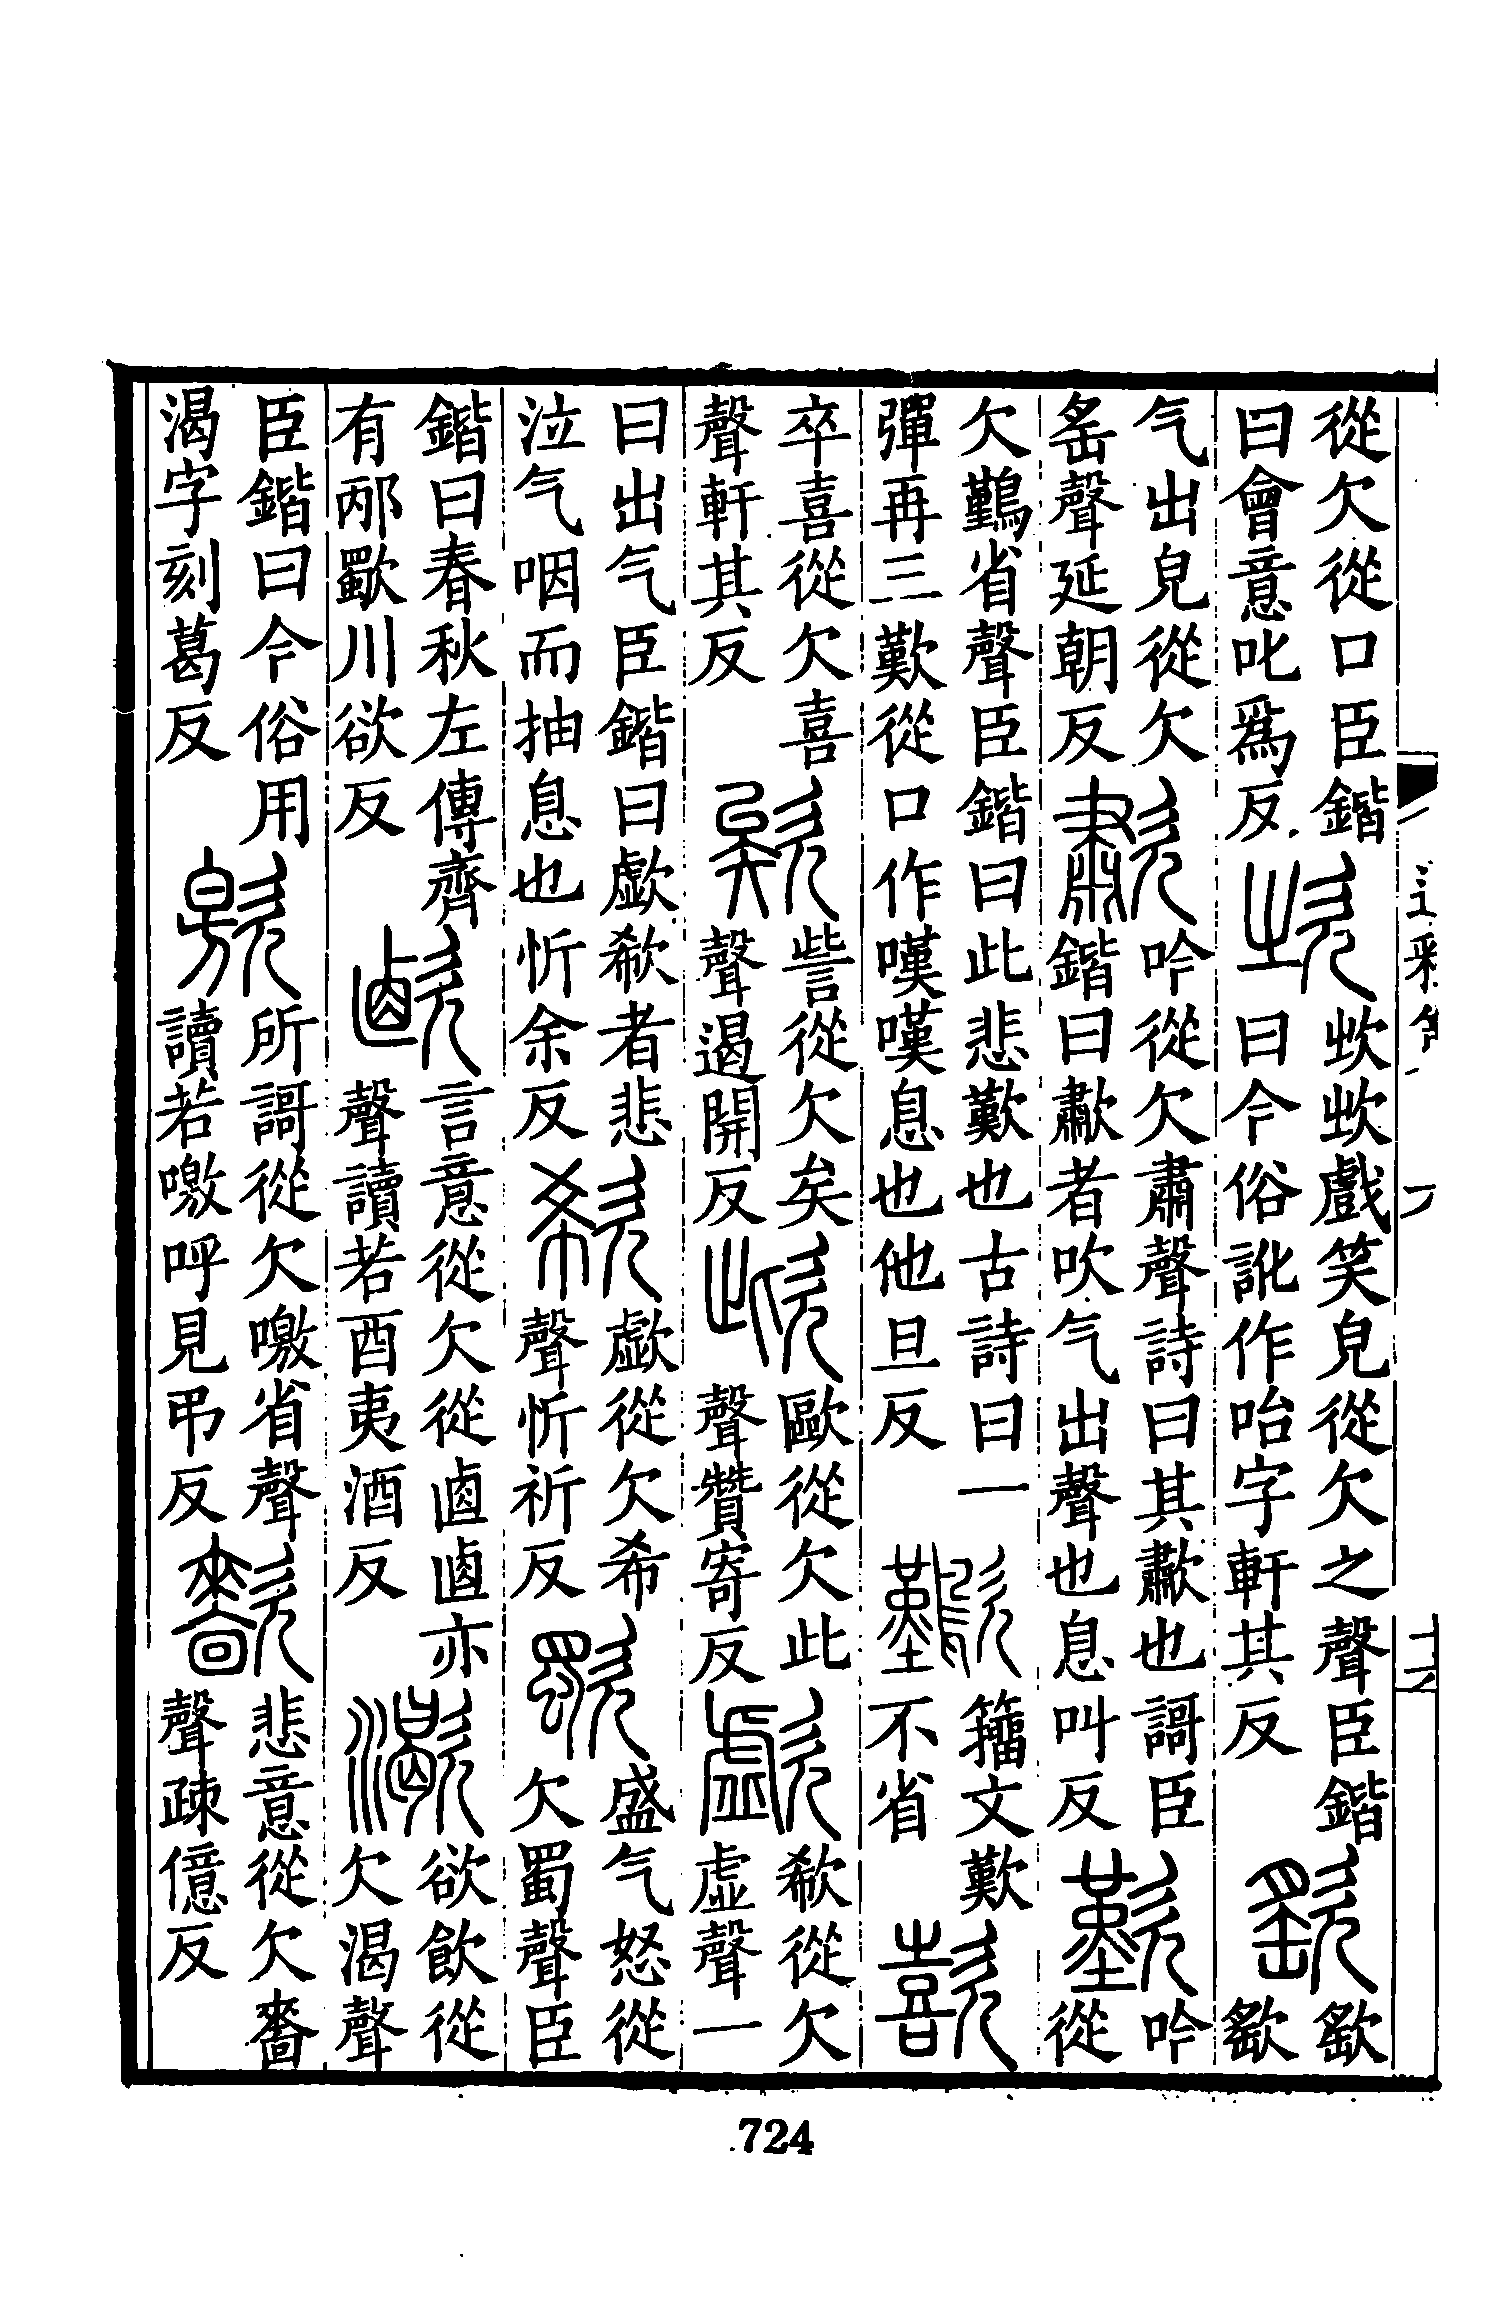 從欠從口臣鍇
曰會意叱爲反
㰞
㰞㰞戲笑皃從欠之聲臣鍇
曰今俗訛作咍字軒其反
𣣳
𣣳
𣣳
气出皃從欠
䍃聲延朝反
歗
吟從欠肅聲詩曰其歗也謌臣
鍇曰歗者吹气出聲也息叫反
歎
吟
從
欠鷬省聲臣鍇曰此悲歎也古詩曰一
彈再三歎從口作嘆嘆息也他旦反
籒文歎
不省
歖
卒喜從欠喜
聲軒其反
欸
訾從欠矣
聲遏開反
㰣
歐從欠此
聲贊寄反
歔
欷從欠
虛聲一
曰出气臣鍇曰歔欷者悲
泣气咽而抽息也忻余反
欷
歔從欠希
聲忻祈反
歜
盛气怒從
欠蜀聲臣
鍇曰春秋左傳齊
有邴歜川欲反
言意從欠從卥卥亦
聲讀若酉夷酒反
㵣
欲飲從
欠渴聲
臣鍇曰今俗用
渴字刻葛反
所謌從欠噭省聲
讀若噭呼見弔反
㱇
悲意從欠嗇
聲疎億反
十六
724